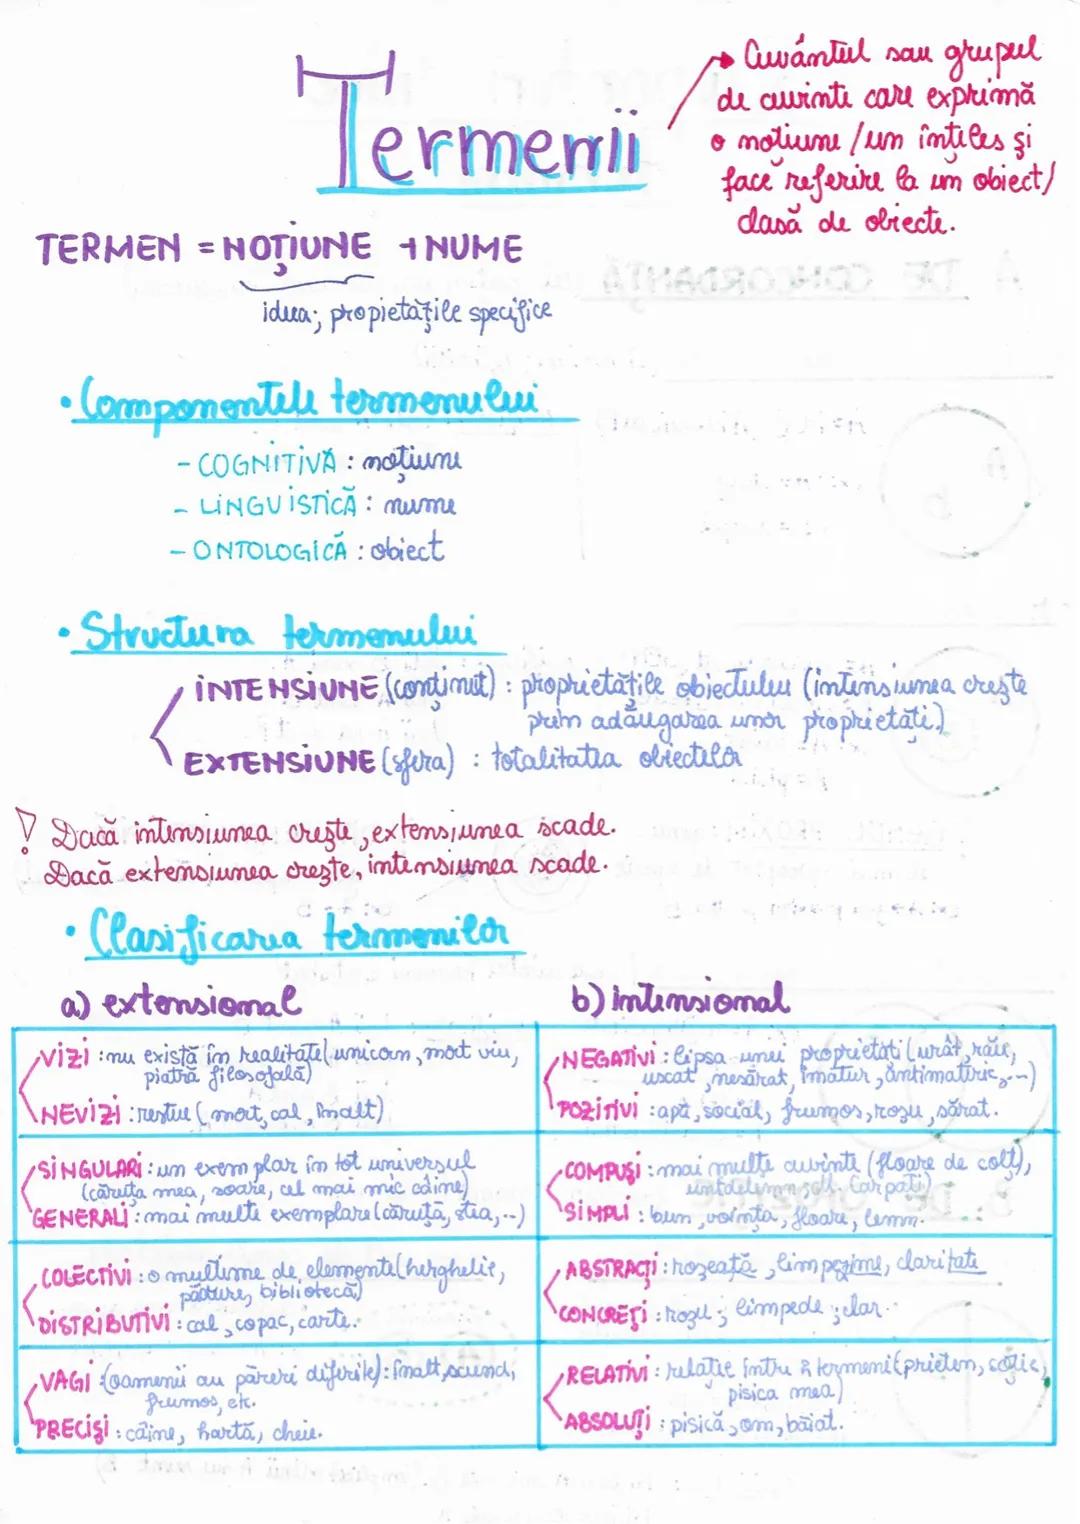 Termenii
→ Cuvântul sau grupul
de cuvinte care exprimă
o noțiune/un înțeles și
face referire la un obiect/
clasă de obiecte.
TERMEN = NOȚIUNE + NUME
ideea; propietățile specifice
• Componentele termenului
- COGNITIVĂ : noțiune
- LINGVISTICĂ : nume
- ONTOLOGICĂ : obiect
• Structura termenului
INTENSIUNE (conținut) : proprietățile obiectului (intensiunea crește
prin adăugarea unor proprietăți)
EXTENSIUNE (sfera) : totalitatea obiectelor
! Dacă intensiunea crește, extensiunea scade.
Dacă extensiunea crește, intensiunea scade.
• Clasificarea termenilor
a) extensional
VIZI : nu există în realitate (unicorn, mort viu,
piatră filosofală)
NEVIZI : restul (mort, cal, înalt)
SINGULARI : un exemplar în tot universul
(căruța mea, soare, cel mai mic câine)
GENERALI : mai multe exemplare (căruță, stea,...)
COLECTIVI : o mulțime de elemente (herghelie,
pădure, bibliotecă)
DISTRIBUTIVI : cal, copac, carte.
VAGI : (oamenii au păreri diferite) : înalt, scund,
frumos, etc.
PRECIȘI : câine, hartă, cheie.
b) intensional
NEGATIVI : lipsa unei proprietăți (urât, rău,
uscat, nesărat, imatur, antimateric,...)
POZITIVI : apă, social, frumos, roșu, sărat.
COMPUȘI : mai multe cuvinte (floare de colț),
untdelemn, Carpați)
SIMPLI : bun, voință, floare, lemn.
ABSTRACȚI : roșeață, limpezime, claritate
CONCREȚI : roșu ; limpede ; clar.
RELATIVI : relație între 2 termeni (prieten, soție,
pisica mea)
ABSOLUȚI : pisică, om, băiat.